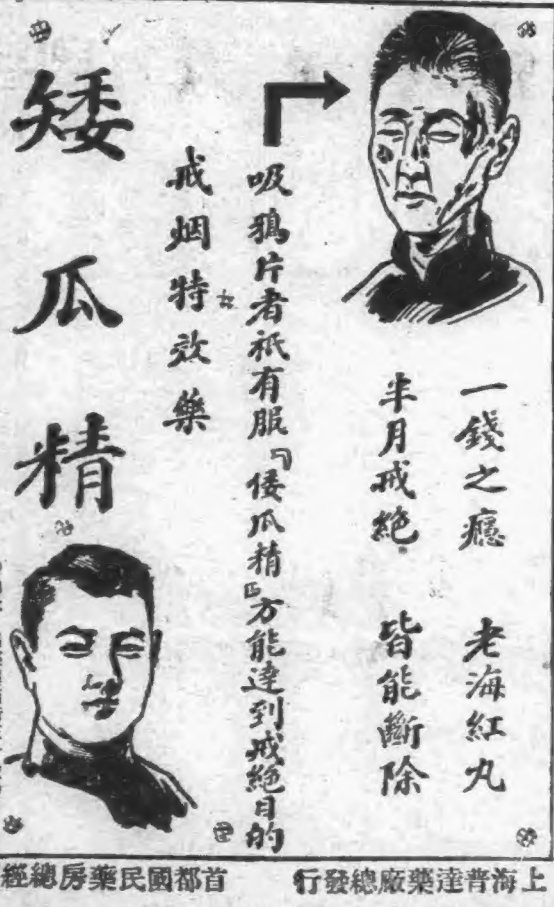 一錢之癮 老海紅丸
半月戒絕 皆能斷除
吸鴉片者祇有服『倭瓜精』方能達到戒絕目的
戒烟特效藥
矮瓜精
上海普達藥廠總發行
首都國民藥房總經